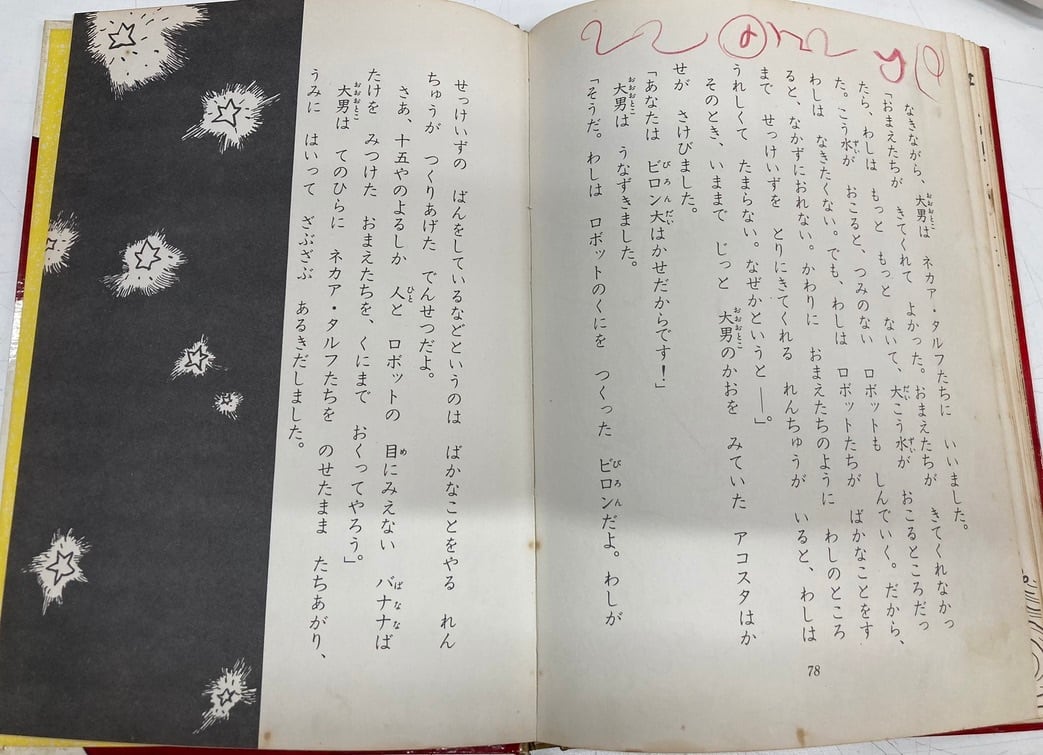 なきながら、大男は ネカア・タルフたちに いいました。
「おまえたちが きてくれて よかった。おまえたちが きてくれなかっ
たら、わしは もっと もっと ないて、大こう水が おこるところだっ
た。こう水が おこると、つみのない ロボットも しんでいく。だから、
わしは なきたくない。でも、わしは ロボットたちが ばかなことをす
ると、なかずにおれない。かわりに おまえたちのように わしのところ
まで せっけいずを とりにきてくれる れんちゅうが いると、わしは
うれしくて たまらない。なぜかというと――。」
そのとき、いままで じっと 大男のかおを みていた アコスタはか
せが さけびました。
「あなたは ピロン大はかせだからです!」
大男は うなずきました。
「そうだ。わしは ロボットのくにを つくった ピロンだよ。わしが
78
せっけいずの ばんをしているなどというのは ばかなことをやる れん
ちゅうが つくりあげた でんせつだよ。
さあ、十五やのよるしか 人と ロボットの 目にみえない バナナば
たけを みつけた おまえたちを、くにまで おくってやろう。」
大男は てのひらに ネカア・タルフたちを のせたまま たちあがり、
うみに はいって ざぶざぶ あるきだしました。